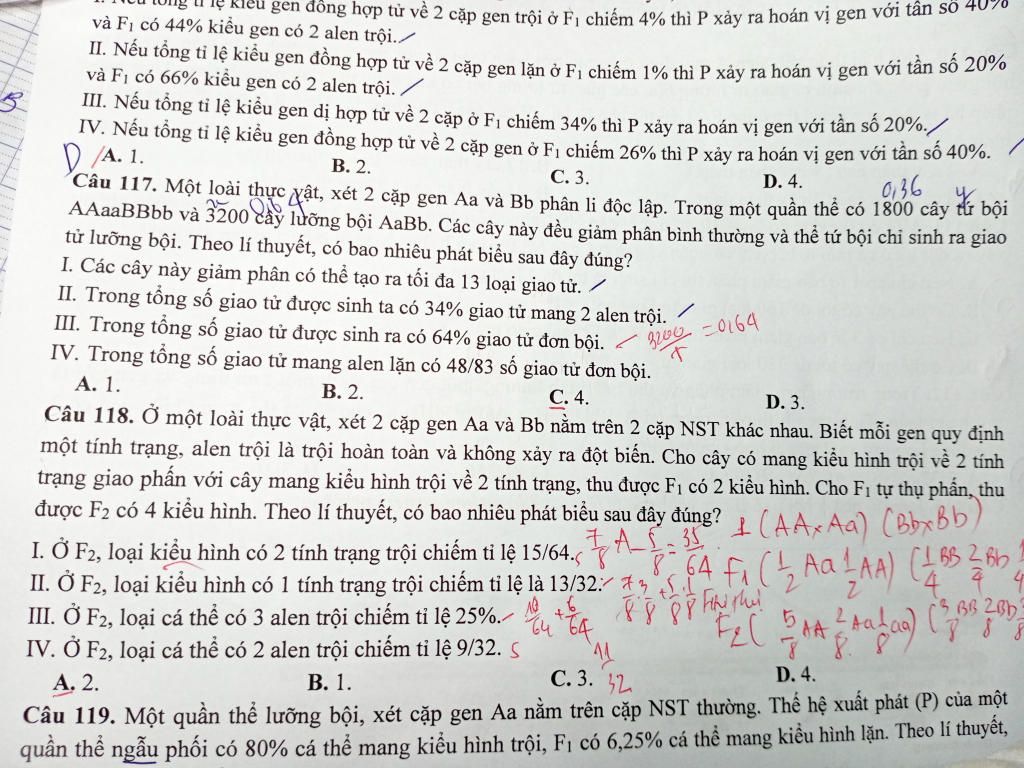 tỉ lệ kiểu gen đồng hợp tử về 2 cặp gen trội ở F₁ chiếm 4% thì P xảy ra hoán vị gen với tần số 40%
và F₁ có 44% kiểu gen có 2 alen trội.
II. Nếu tổng tỉ lệ kiểu gen đồng hợp tử về 2 cặp gen lặn ở F₁ chiếm 1% thì P xảy ra hoán vị gen với tần số 20%
và F₁ có 66% kiểu gen có 2 alen trội.
III. Nếu tổng tỉ lệ kiểu gen dị hợp tử về 2 cặp ở F₁ chiếm 34% thì P xảy ra hoán vị gen với tần số 20%.
IV. Nếu tổng tỉ lệ kiểu gen đồng hợp tử về 2 cặp gen ở F₁ chiếm 26% thì P xảy ra hoán vị gen với tần số 40%.
D A. 1. B. 2. C. 3. D. 4.
0,36 4
Câu 117. Một loài thực vật, xét 2 cặp gen Aa và Bb phân li độc lập. Trong một quần thể có 1800 cây tứ bội
0,64
AAaaBBbb và 3200 cây lưỡng bội AaBb. Các cây này đều giảm phân bình thường và thể tứ bội chỉ sinh ra giao
tử lưỡng bội. Theo lí thuyết, có bao nhiêu phát biểu sau đây đúng?
I. Các cây này giảm phân có thể tạo ra tối đa 13 loại giao tử.
II. Trong tổng số giao tử được sinh ta có 34% giao tử mang 2 alen trội.
III. Trong tổng số giao tử được sinh ra có 64% giao tử đơn bội. 3200/ = 0,64
IV. Trong tổng số giao tử mang alen lặn có 48/83 số giao tử đơn bội.
A. 1. B. 2. C. 4. D. 3.
Câu 118. Ở một loài thực vật, xét 2 cặp gen Aa và Bb nằm trên 2 cặp NST khác nhau. Biết mỗi gen quy định
một tính trạng, alen trội là trội hoàn toàn và không xảy ra đột biến. Cho cây có mang kiểu hình trội về 2 tính
trạng giao phấn với cây mang kiểu hình trội về 2 tính trạng, thu được F₁ có 2 kiểu hình. Cho F₁ tự thụ phấn, thu
được F₂ có 4 kiểu hình. Theo lí thuyết, có bao nhiêu phát biểu sau đây đúng? 1 (AA x Aa) (Bb x Bb)
I. Ở F₂, loại kiểu hình có 2 tính trạng trội chiếm tỉ lệ 15/64. S 7/8 A_ 5/8 = 35/64 F₁ (1/2 Aa 1/2 AA) (1/4 BB 2/4 Bb
II. Ở F₂, loại kiểu hình có 1 tính trạng trội chiếm tỉ lệ là 13/32. 7/8 . 3/8 + 5/8 . 1/8
III. Ở F₂, loại cá thể có 3 alen trội chiếm tỉ lệ 25%. 10/64 + 6/64 F₂ ( 5/8 AA 2/8 Aa 1/8 aa) (3/8 BB 2/8 Bb
IV. Ở F₂, loại cá thể có 2 alen trội chiếm tỉ lệ 9/32. S 11/32
A. 2. B. 1. C. 3. D. 4.
Câu 119. Một quần thể lưỡng bội, xét cặp gen Aa nằm trên cặp NST thường. Thế hệ xuất phát (P) của một
quần thể ngẫu phối có 80% cá thể mang kiểu hình trội, F₁ có 6,25% cá thể mang kiểu hình lặn. Theo lí thuyết,